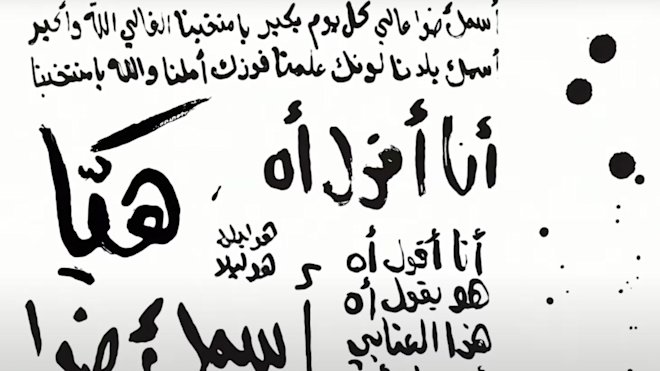 أسمك ضوا عالي كل يوم يكبر يا منتخبنا الغالي الله وأكبر
أسمك بلدنا لونك علمنا فوزك أملنا والله يا منتخبنا
أنا أقول أه
هيّا
أنا أقول أه
هو يقول أه
هذا العنابي
هدا
هد ليلا
أسمك ضوا